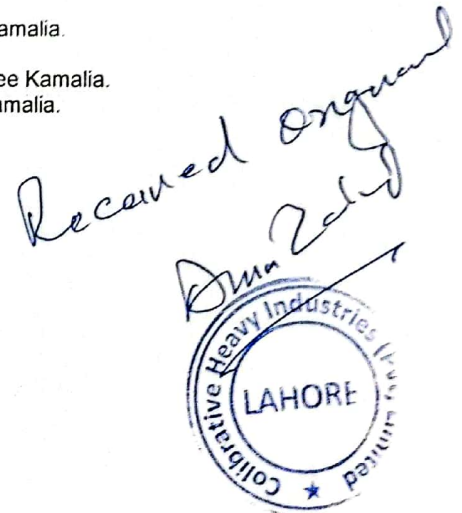 amalia.
ee Kamalia.
amalia.
Received Original
Zahid
Colibrative Heavy Industries (Pvt) Limited
LAHORE